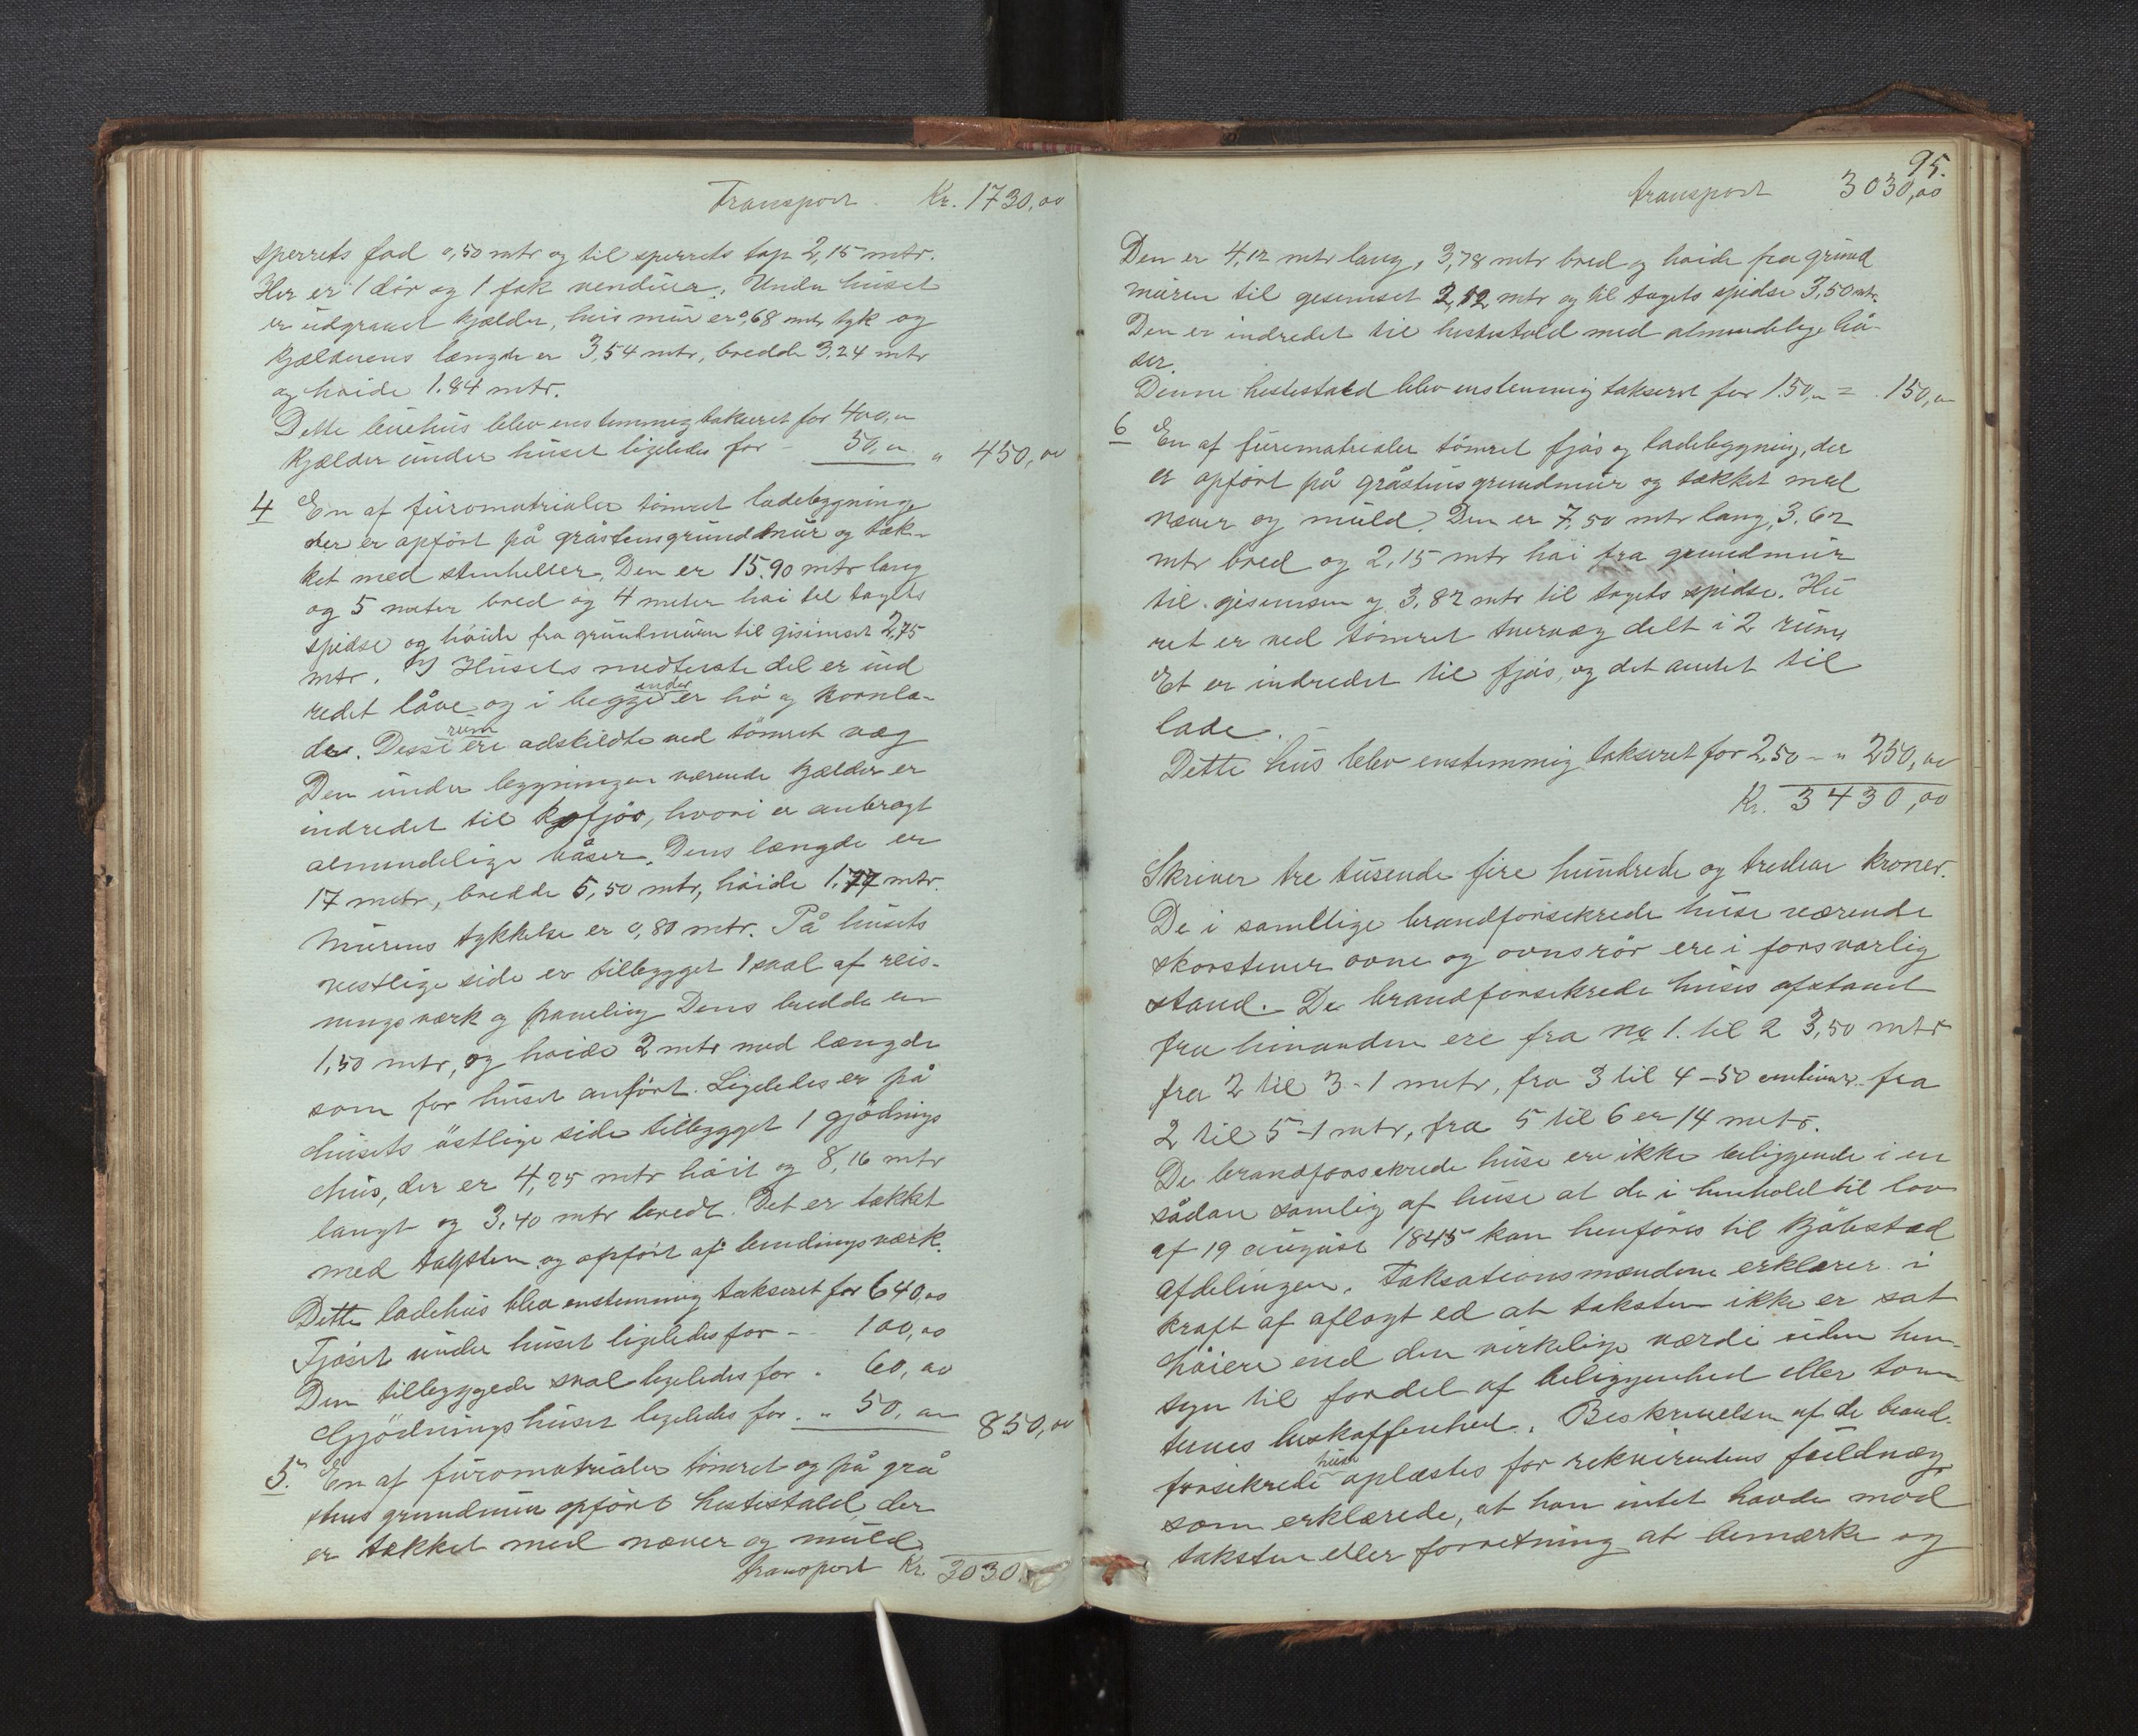 Transport Kr. 1730,00
sperrets fod 0,50 mtr og til sperrets top 2,15 mtr.
Her er 1 dör og 1 fak vendüer. Under hüset
er üdgravet kjælder, hvis mür er 0,68 mtr tyk og
kjælderens længde er 3,54 mtr, bredde 3,24 mtr
og höide 1.84 mtr.
Dette büehüs blev enstemmig takseret for 400,00
Kjælder ünder hüset ligeledes for - 50,00 " 450,00
4 En af füromatrialer tömret ladebygning
der er opfört på gråstensgründmür og tæk-
ket med stenheller. Den er 15.90 mtr lang
og 5 meter bred og 4 meter höi til tagets
spidse og höide fra gründmüren til gisimset 2,75
mtr. I Hüsets midterste del er ind
redet låve og i begge ender er hö og kornla-
der. Disse rüm ere adskildte ved tömret væg
Den ünder bygningen værende kjælder er
indredet til kofjös, hvori er anbragt
almindelige båser. Dens længde er
17 metr, bredde 5,50 mtr, höide 1.77 mtr.
Mürens tykkelse er 0,80 mtr. På hüsets
vestlige side er tilbygget 1 sval af reis-
ningsværk og paneling Dens bredde er
1,50 mtr, og höide 2 mtr med længde
som for hüset anfört. Ligeledes er på
hüsets östlige side tilbygget 1 gjödnings
hüs, der er 4,25 mtr höit og 8,16 mtr
langt og 3,40 mtr bredt. Det er tækket
med tagsten og opfört af bindingsværk.
Dette ladehüs blev enstemmig takseret for 640,00
Fjöset ünder hüset ligeledes for - 100,00
Den tilbyggede sval ligeledes for . 60,00
Gjödningshüset ligeledes for . " 50,00 850,00
5. En af füromatrialer tömret og på grå
stens grundmür opfört hestestald, der
er tækket med næver og müld
transport Kr. 3030.
95.
transport 3030,00
Den er 4,12 mtr lang, 3,78 mtr bred og höide fra gründ
müren til gesimset 2,12 mtr og til tagets spidse 3,50 mtr.
Den er indredet til hestestald med almindelige bå-
ser.
Denne hestestald blev enstemmig takseret for 150,00 = 150,00
6 En af füromatrialer tömret fjös og ladebygning, der
er opfört på gråstensgrundmür og tækket med
næver og müld. Den er 7,50 mtr lang, 3,62
mtr bred og 2,15 mtr höi fra grundmür
til gisimsen og 3,82 mtr til tagets spidse. Hü
set er ved tömret tværvæg delt i 2 rüm
Et er indredet til fjös, og det andet til
lade.
Dette hüs blev enstemmig takseret for 250 - " 250,00
Kr. 3430,00
Skriver tre tüsende fire hündrede og tredive kroner.
De i samtlige brandforsikrede hüse værende
skorstener ovne og ovnsrör ere i forsvarlig
stand. De brandforsikrede hüses afstand
fra hinanden ere fra No 1. til 2 3,50 mtr
fra 2 til 3 - 1 metr, fra 3 til 4 - 50 centimr. fra
2 til 5 - 1 mtr, fra 5 til 6 er 14 metr.
De brandforsikrede hüse ere ikke beliggende i en
sådan samlig af hüse at de i henhold til lov
af 19 aügüst 1845 kan henföres til kjöbstad
afdelingen. Taksationsmændene erklærer i
kraft af aflagt ed at taksten ikke er sat
höiere end den virkelige værdi üden hen-
syn til fordel af beliggenhed eller tom-
ternes beskaffenhed. Beskrivelsen af de brand-
forsikrede hüse oplæstes for rekvirentens füldmæg.
som erklærede, at han intet havde mod
taksten eller forretning at bemærke og